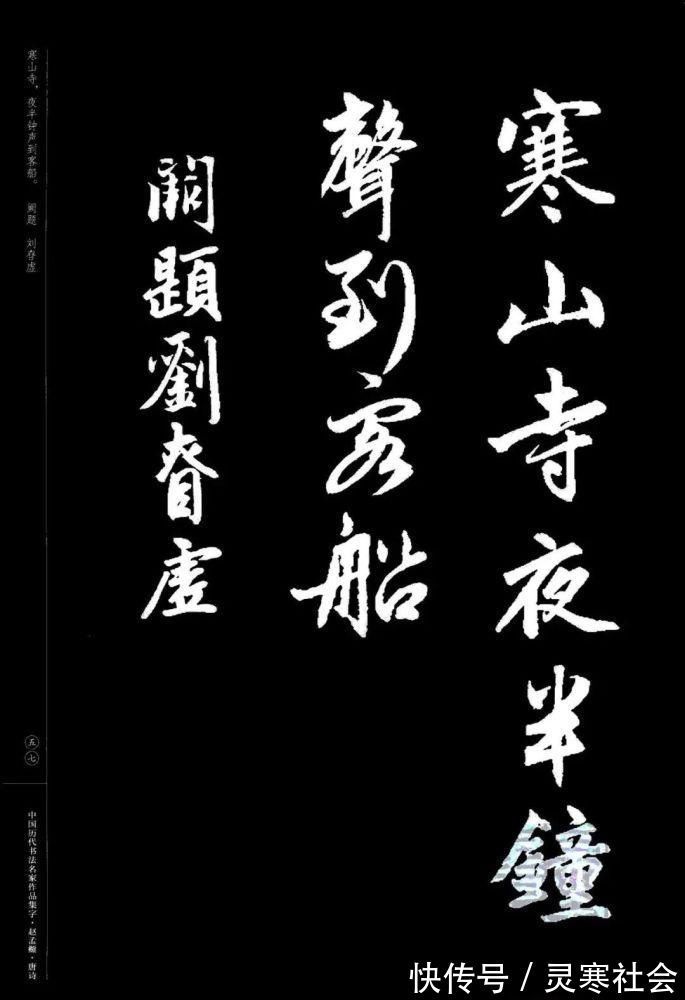 寒山寺夜半鐘
聲到客船
闕題劉眘虛
寒山�，夜半钟声到客船。　阙题　刘眘虚
五七
中国历代书法名家作品集字·赵孟頫·唐诗
快传号／灵寒社会